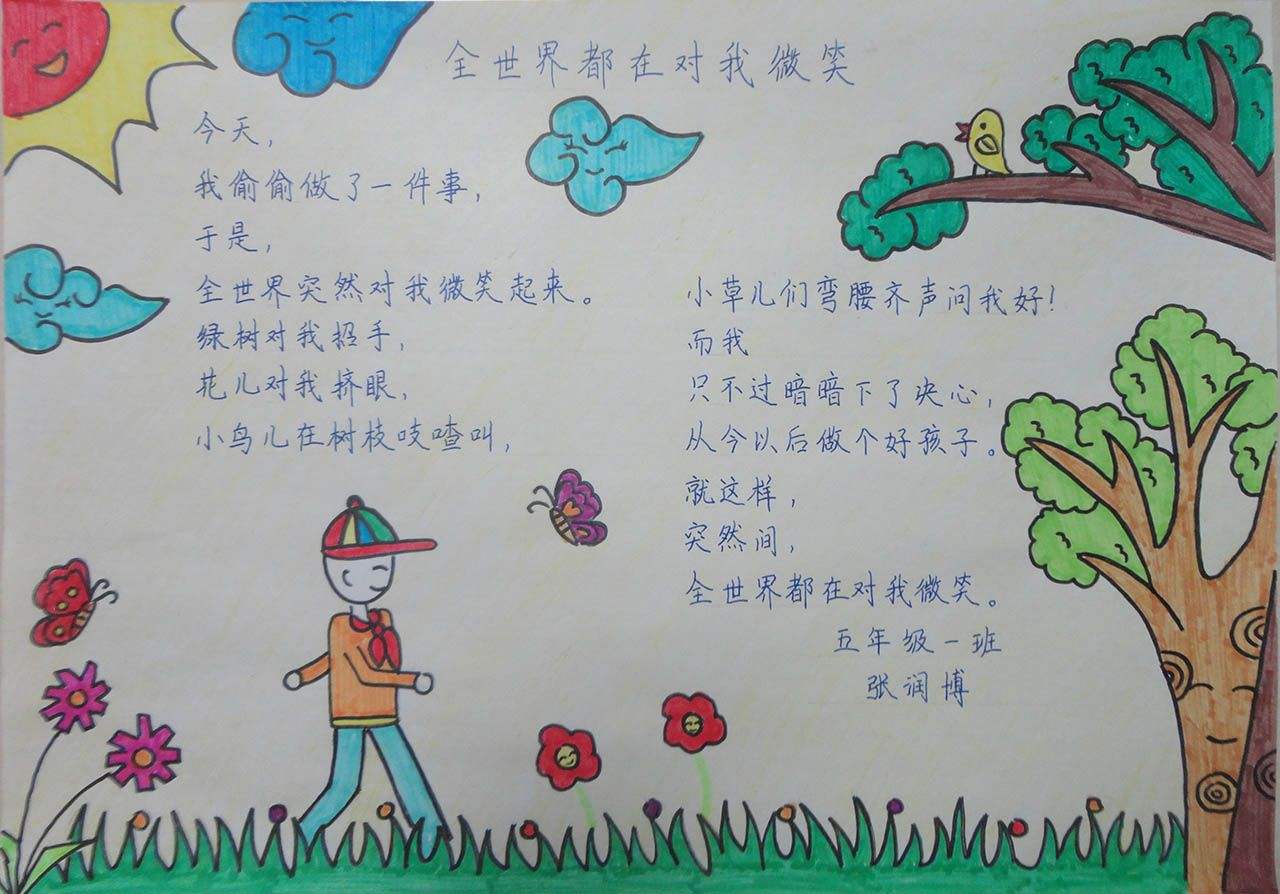 全世界都在对我微笑
今天，
我偷偷做了一件事，
于是，
全世界突然对我微笑起来。
绿树对我招手，
花儿对我挤眼，
小鸟儿在树枝吱喳叫，
小草儿们弯腰齐声问我好！
而我
只不过暗暗下了决心，
从今以后做个好孩子。
就这样，
突然间，
全世界都在对我微笑。
五年级一班
张润博